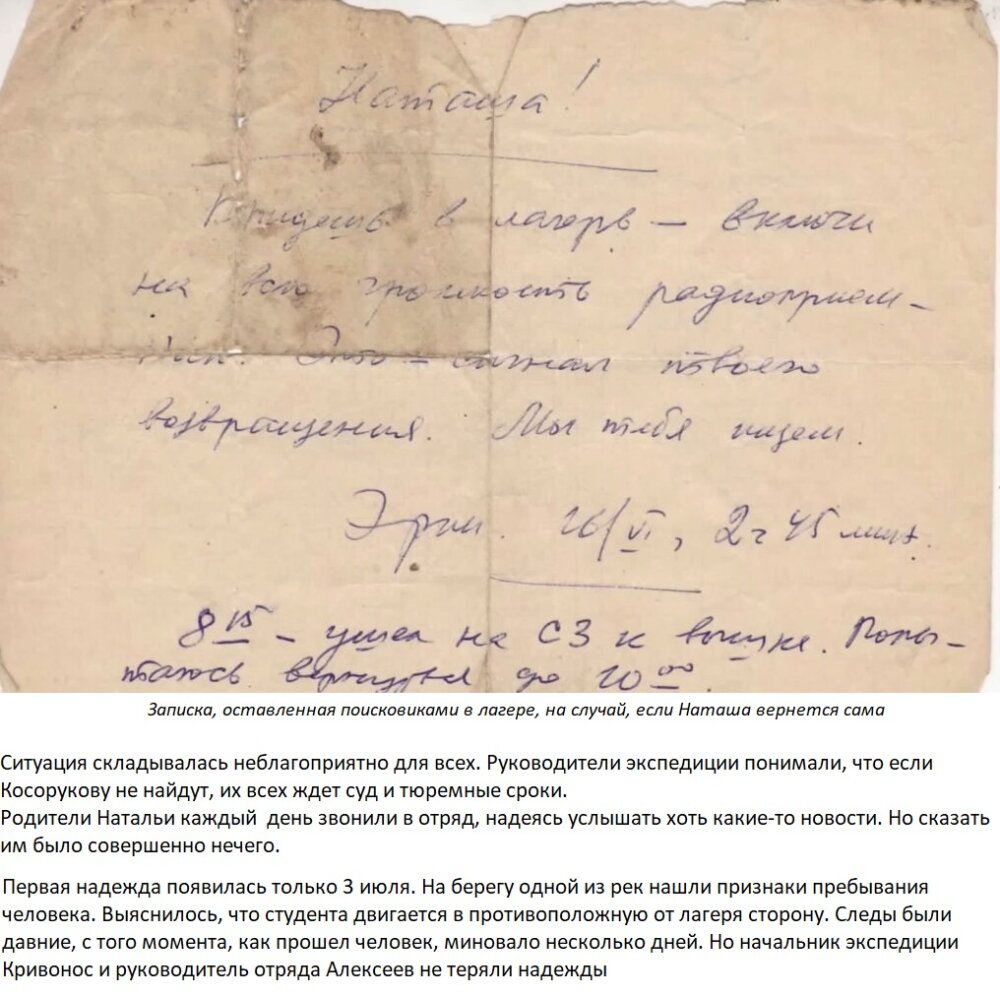 Наташа!
Придешь в лагерь — включи
на всю громкость радиоприем-
ник. Это — сигнал твоего
возвращения. Мы тебя ищем.
26/VI, 2ч 45 мин.
8 15 — ушел на СЗ к вышке. Попы-
таюсь вернуться до 10 00.
Записка, оставленная поисковиками в лагере, на случай, если Наташа вернется сама
Ситуация складывалась неблагоприятно для всех. Руководители экспедиции понимали, что если
Косорукову не найдут, их всех ждет суд и тюремные сроки.
Родители Натальи каждый день звонили в отряд, надеясь услышать хоть какие-то новости. Но сказать
им было совершенно нечего.
Первая надежда появилась только 3 июля. На берегу одной из рек нашли признаки пребывания
человека. Выяснилось, что студента двигается в противоположную от лагеря сторону. Следы были
давние, с того момента, как прошел человек, миновало несколько дней. Но начальник экспедиции
Кривонос и руководитель отряда Алексеев не теряли надежды